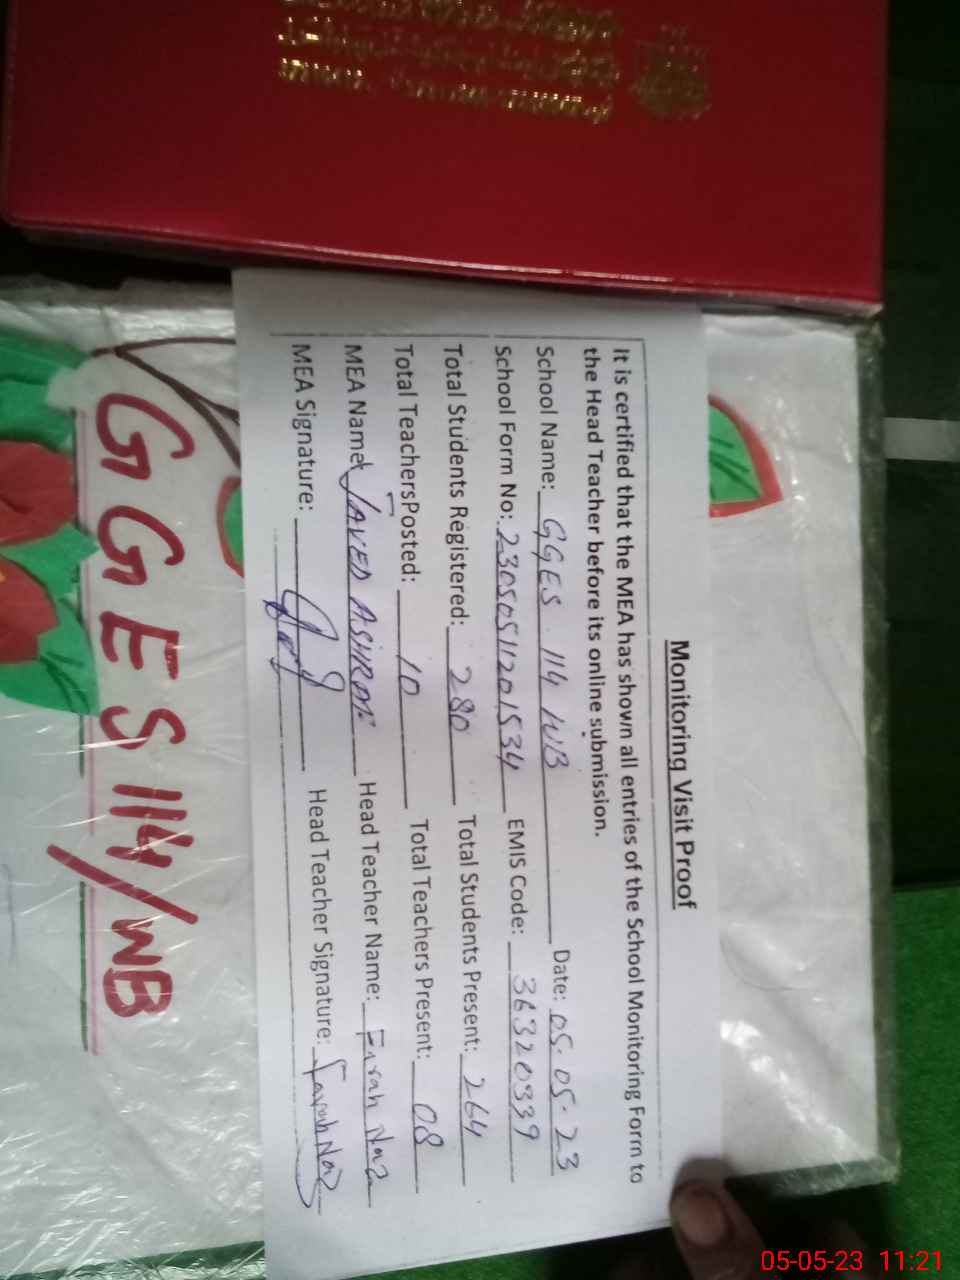 Monitoring Visit Proof
It is certified that the MEA has shown all entries of the School Monitoring Form to
the Head Teacher before its online submission.
School Name: GGES 114 WB Date: 05.05.23
School Form No: 23050511201534 EMIS Code: 36320339
Total Students Registered: 280 Total Students Present: 264
Total TeachersPosted: 10 Total Teachers Present: 08
MEA Name: JAVED ASHRAF Head Teacher Name: Farah Naz
MEA Signature: Head Teacher Signature: Farah Naz
GGES 114/WB
05-05-23 11:21